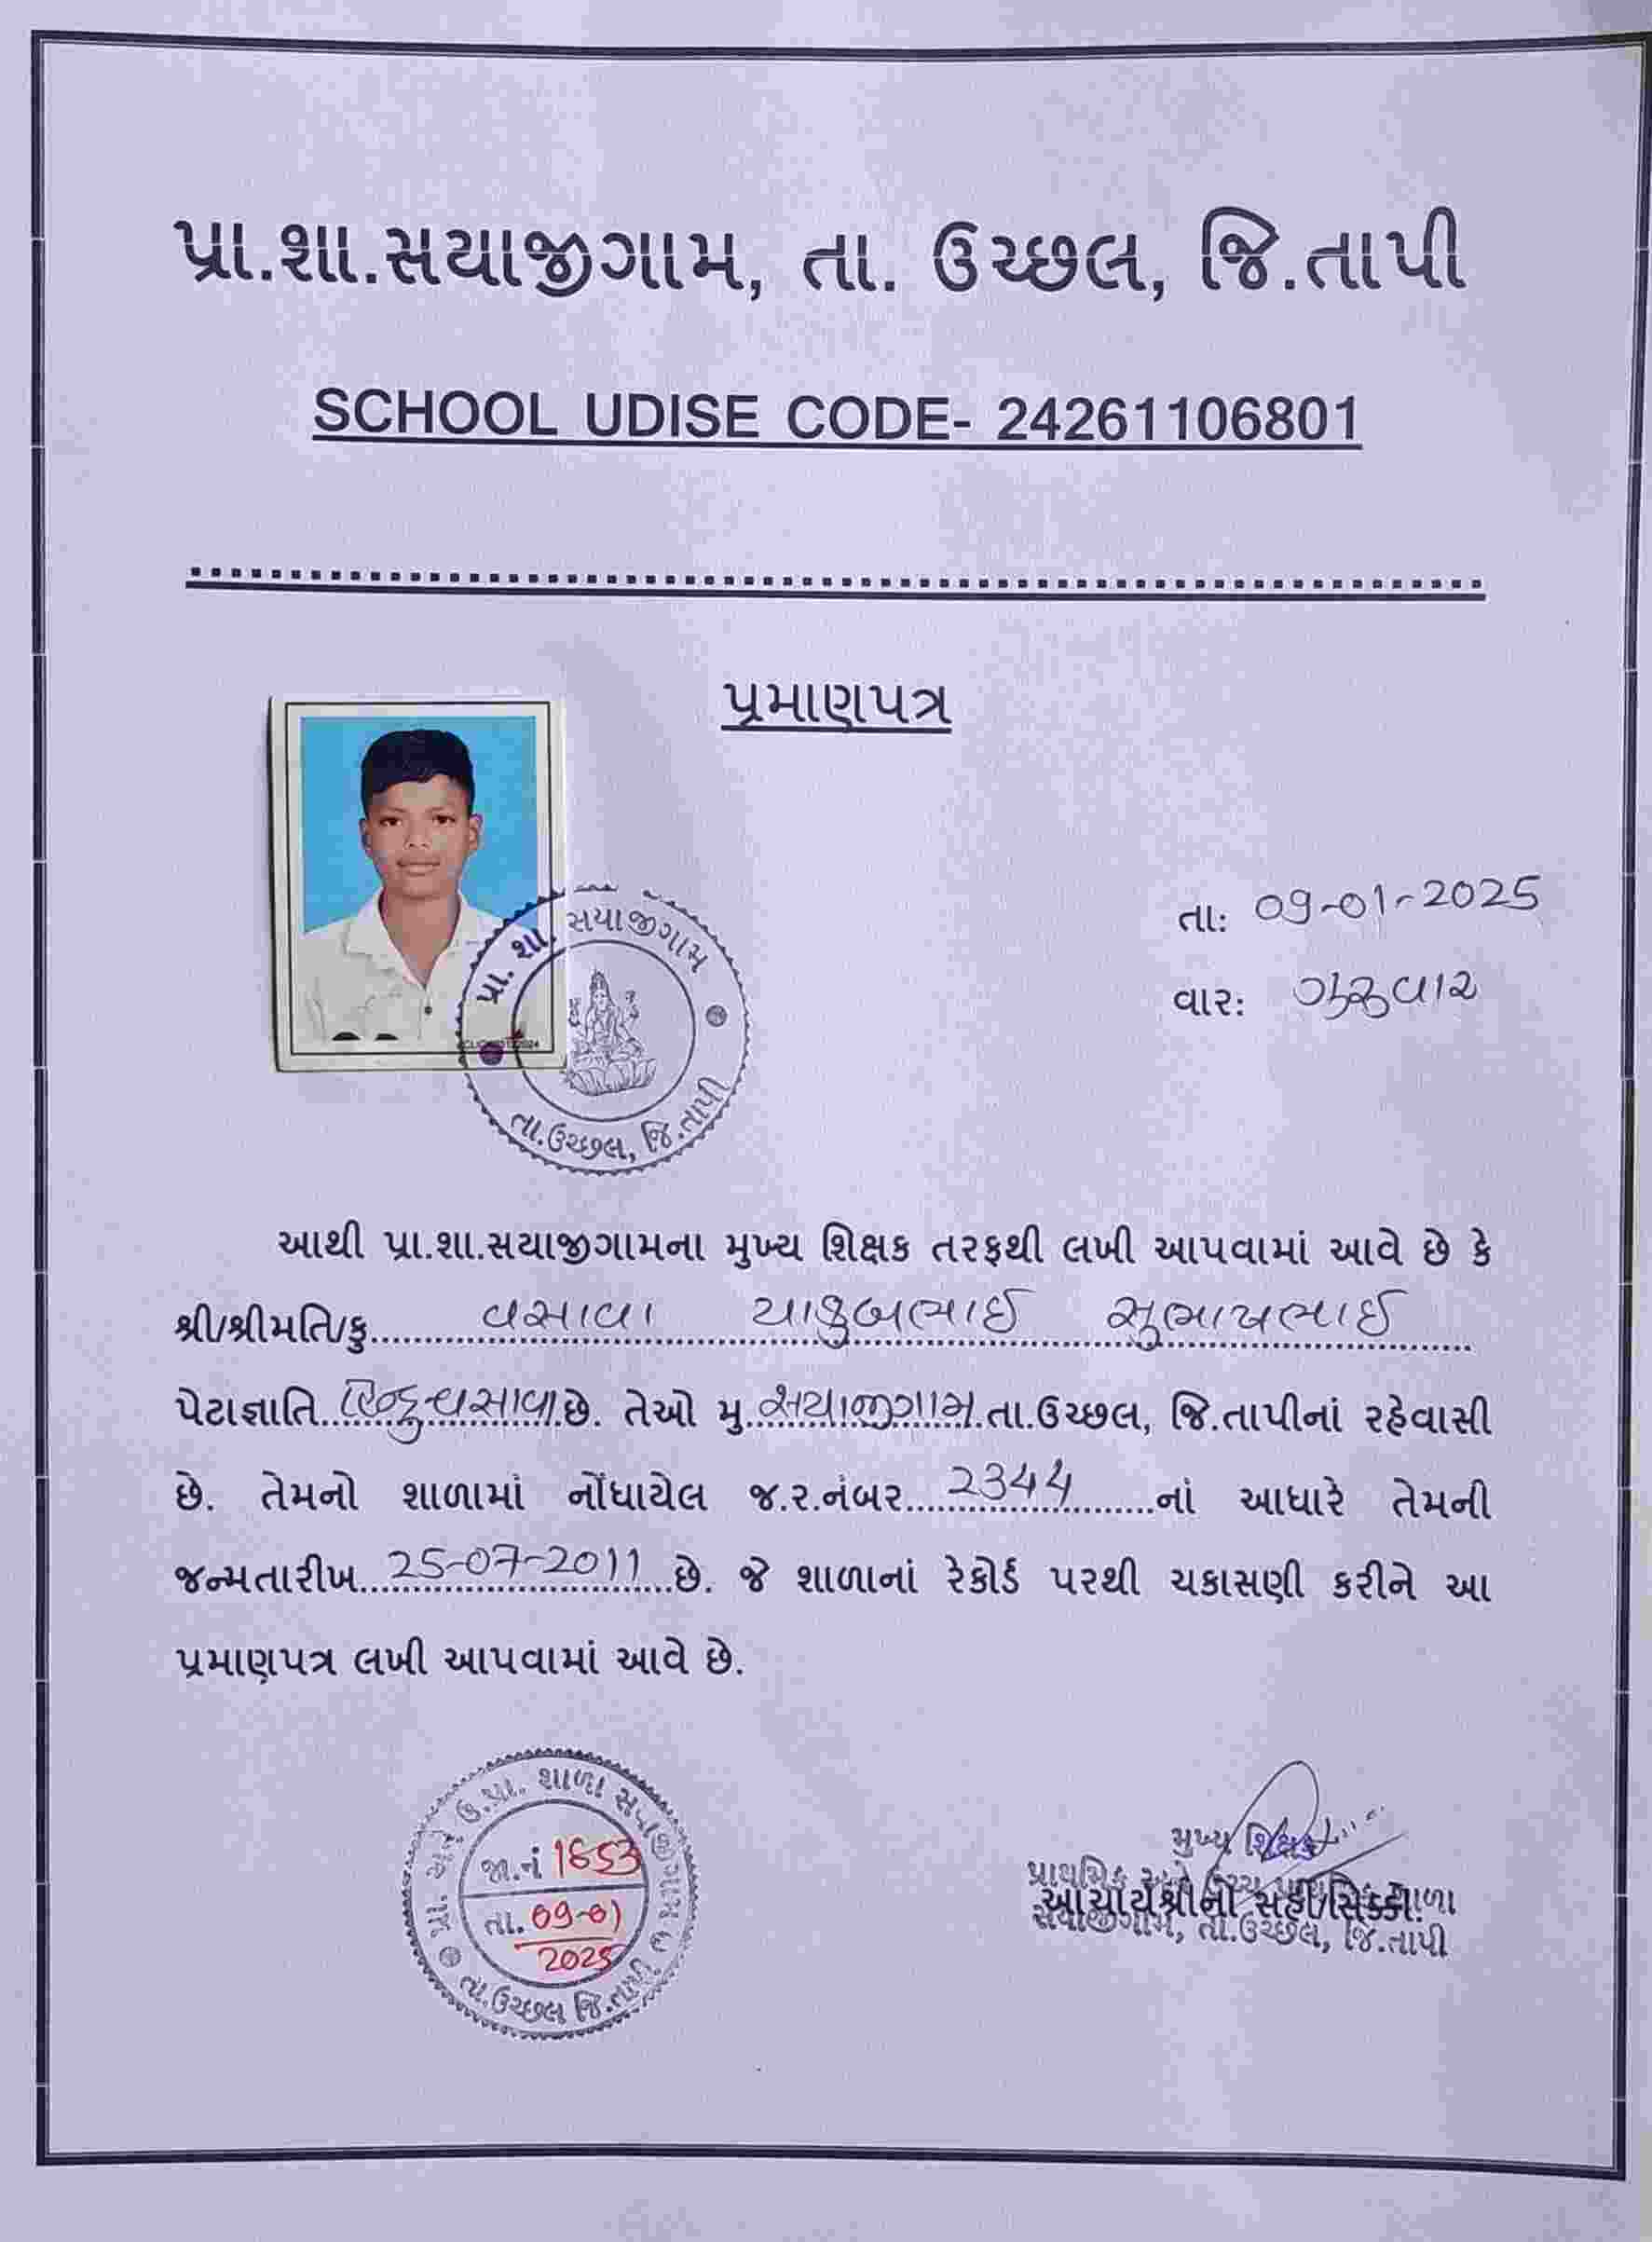 પ્રા.શા.સયાજીગામ, તા. ઉચ્છલ, જિ.તાપી
SCHOOL UDISE CODE- 24261106801
પ્રમાણપત્ર
પ્રા. શા. સયાજીગામ
તા.ઉચ્છલ, જિ.તાપી
તા: 09-01-2025
વાર: ગુરૂવાર
આથી પ્રા.શા.સયાજીગામના મુખ્ય શિક્ષક તરફથી લખી આપવામાં આવે છે કે
શ્રી/શ્રીમતિ/કુ. વસાવા યાકુબભાઈ સુભાષભાઈ
પેટાજ્ઞાતિ હિન્દુ વસાવા છે. તેઓ મુ. સયાજીગામ તા.ઉચ્છલ, જિ.તાપીનાં રહેવાસી
છે. તેમનો શાળામાં નોંધાયેલ જ.ર.નંબર 2344 નાં આધારે તેમની
જન્મતારીખ 25-07-2011 છે. જે શાળાનાં રેકોર્ડ પરથી ચકાસણી કરીને આ
પ્રમાણપત્ર લખી આપવામાં આવે છે.
ઉ.પ્રા. શાળા સયાજીગામ
જા.નં 1653
તા. 09-01
2025
તા.ઉચ્છલ જિ.તાપી
મુખ્ય શિક્ષક
આચાર્યશ્રીની સહી/સિક્કો
સયાજીગામ, તા.ઉચ્છલ, જિ.તાપી